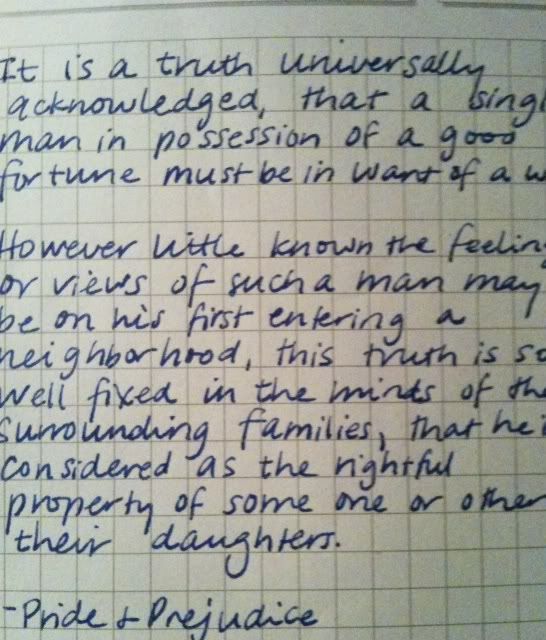 It is a truth universally
acknowledged, that a singl
man in possession of a good
fortune must be in want of a w
However little known the feelin
or views of such a man may
be on his first entering a
neighborhood, this truth is so
well fixed in the minds of the
surrounding families, that he i
considered as the rightful
property of some one or other
their daughters.
-Pride & Prejudice